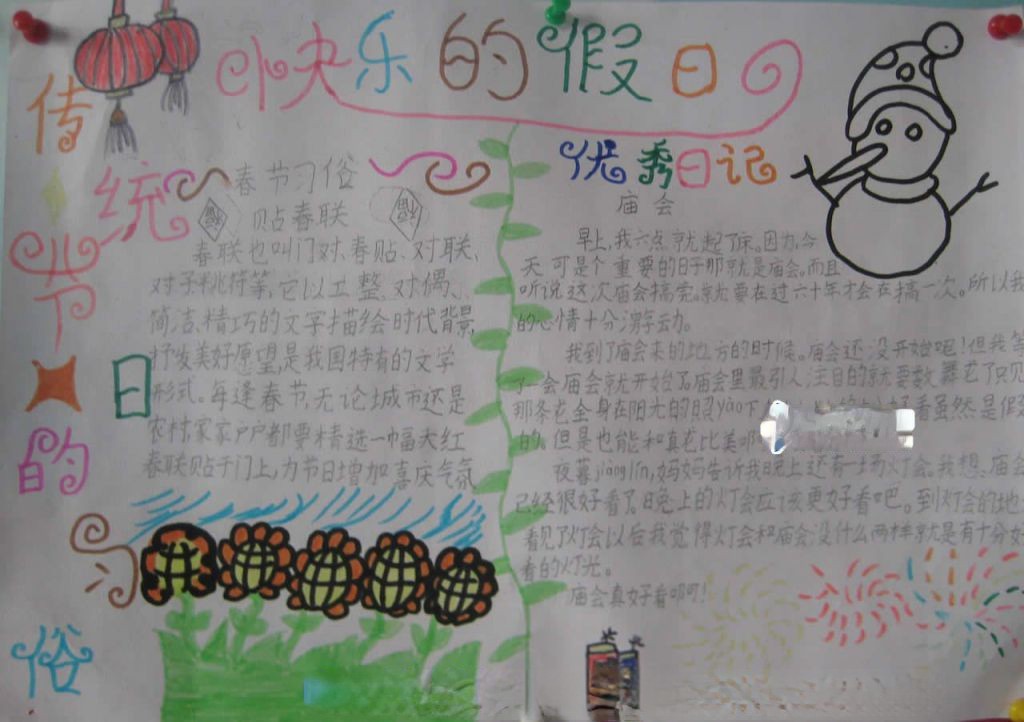 快乐的假日
传统节日的俗
春节习俗
贴春联
福
福
春联也叫门对、春贴、对联、
对子,桃符等,它以工整、对偶、
简洁、精巧的文字描绘时代背景,
抒发美好愿望,是我国特有的文学
形式。每逢春节,无论城市还是
农村家家户户都要精选一幅大红
春联贴于门上,为节日增加喜庆气氛
优秀日记
庙会
早上,我六点就起了床。因为,今
天可是个重要的日子那就是庙会。而且
听说这次庙会搞完。就要在过六十年才会在搞一次。所以我
的心情十分激动。
我到了庙会来的地方的时候。庙会还没开始呢!但我等
了一会庙会就开始了。庙会里最引人注目的就要数舞龙了只见
那条龙全身在阳光的照yào下
好看虽然是假
的,但是也能和真龙比美
夜暮jiànglín,妈妈告诉我晚上还有一场灯会。我想,庙会
已经很好看了。晚上的灯会应该更好看吧。到灯会的地
看见了灯会以后我觉得灯会和庙会没什么两样就是有十分好
看的灯光。
庙会真好看啊!